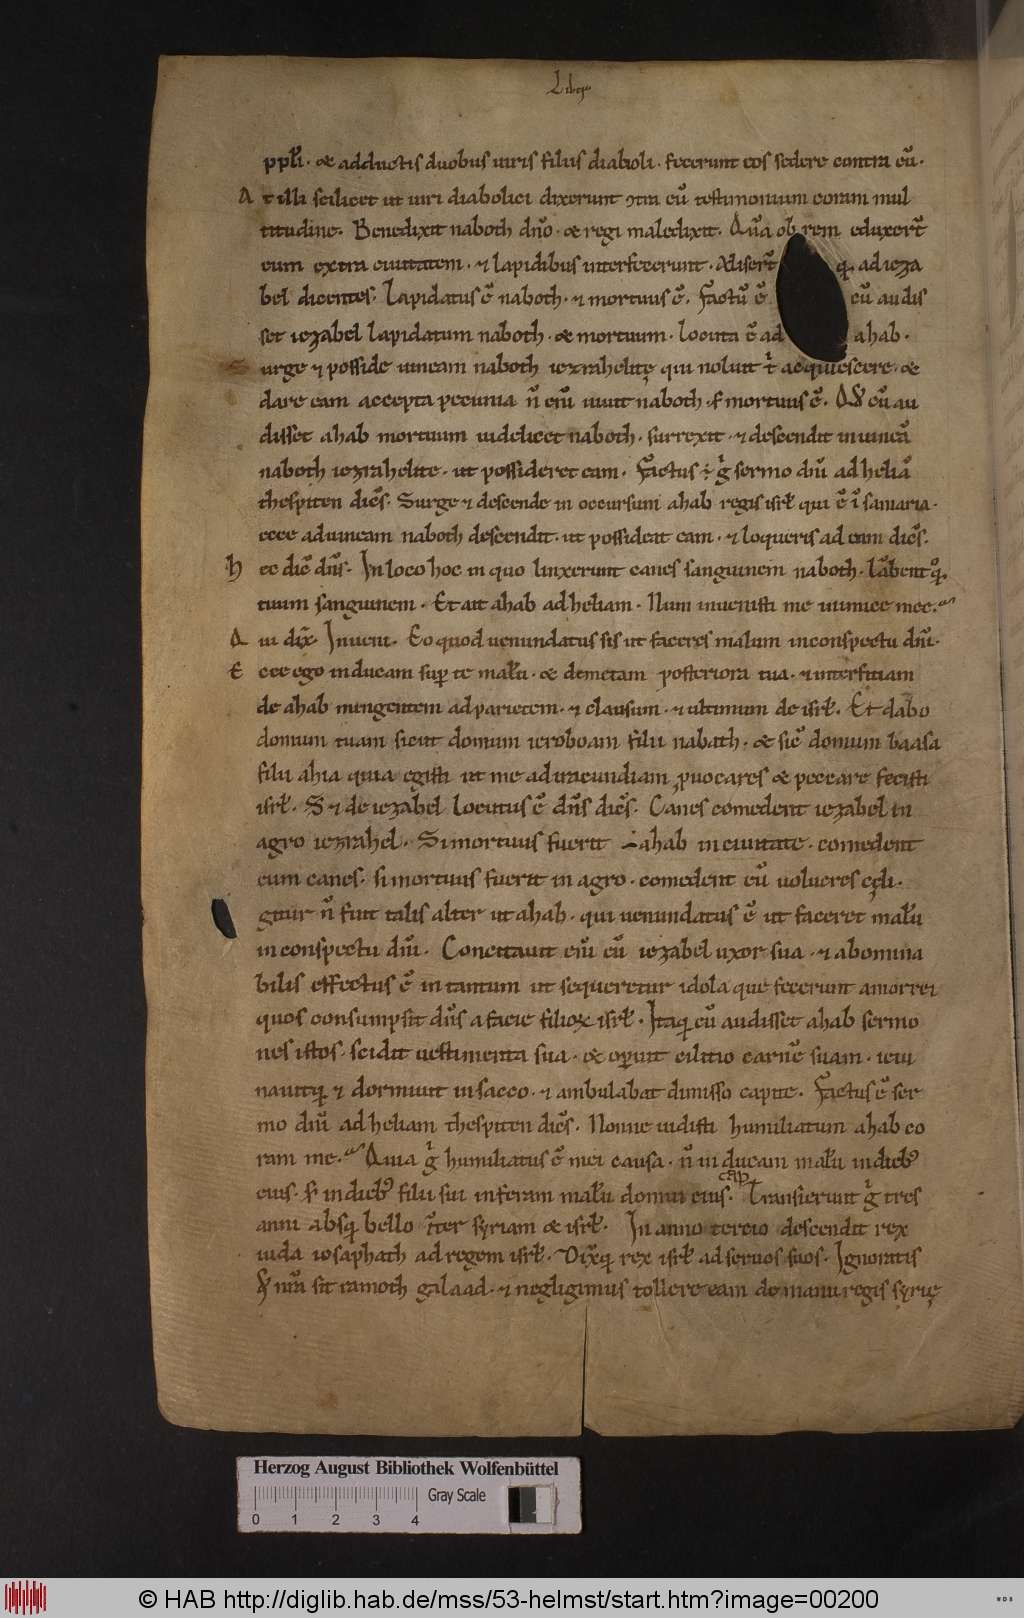 Lib
ppl̄i · & adductis duobus uiris filiis diaboli · fecerunt eos sedere contra eū ·
At illi scilicet ut uiri diabolici dixerunt ↄtra eū testimonium coram mul
titudine · Benedixit naboth dn̄o · & regi maledixit · Quā ob rem eduxer̄t
eum extra ciuitatem · ⁊ lapidibus interfecerunt · Miser̄t q; ad ieza
bel dicentes · Lapidatus ē naboth · ⁊ mortuus ē · Factū ē eū audis
set iezabel lapidatum naboth · & mortuum · locuta ē ad ahab ·
Surge ⁊ posside uineam naboth iezrahelitę qui noluit t̄ acquiescere · &
dare eam accepta pecunia n̄ eni̅ uiuit naboth · s; mortuus ē · Qd̄ cū au
disset ahab mortuum uidelicet naboth · surrexit · ⁊ descendit in uineā
naboth iezrahelite · ut possideret eam · Factus ē g̊ sermo dni̅ ad heliā
thespiten dic̄s · Surge ⁊ descende in occursum ahab regis isrl̄ qui ē ī samaria ·
ecce ad uineam naboth descendit · ut possideat eam · ⁊ loqueris ad eum dic̄s ·
Hec dic̄ dn̄s · In loco hoc in quo linxerunt canes sanguinem naboth · lābent q̊q;
tuum sanguinem · Et ait ahab ad heliam · Num inuenisti me inimice mee ·
Qui dix̄ · Inueni · Eo quod uenundatus sis ut faceres malum in conspectu dni̅ ·
Ecce ego inducam sup̱ te malū · & demetam posteriora tua · ⁊ interfitiam
de ahab mingentem ad parietem · ⁊ clausum · ⁊ ultimum de isrl̄ · Et dabo
domum tuam sicut domum ieroboam filii nabath · & sic̄ domum baasa
filii ahia quia egisti ut me ad iracundiam ꝓuocares & peccare fecisti
isrl̄ · S; ⁊ de iezabel locutus ē dn̄s dic̄s · Canes comedent iezabel in
agro iezrahel · Si mortuus fuerit ahab in ciuitate · comedent
eum canes · si mortuus fuerit in agro · comedent eū uolucres cęli ·
gitur n̄ fuit talis alter ut ahab · qui uenundatus ē ut faceret malū
in conspectu dni̅ · Concitauit eni̅ eū iezabel uxor sua · ⁊ abomina
bilis effectus ē in tantum ut sequeretur idola que fecerunt amorrei
quos consumpsit dn̄s a facie filioꝝ isrl̄ · Itaq; cū audisset ahab sermo
nes istos · scidit uestimenta sua · & op̱uit cilitio carnē suam · ieiu
nauitq; ⁊ dormiuit in sacco · ⁊ ambulabat dimisso capite · Factus ē ser
mo dni̅ ad heliam thespiten dic̄s · Nonne uidisti humiliatum ahab co
ram me · Quia g̊ humiliatus ē mei causa · n̄ inducam malū in dieb;
eius · s; in dieb; filii sui inferam malū domui eius · Transierunt g̊ tres
cap̄
anni absq; bello int̄er syriam & isrl̄ · In anno tercio descendit rex
iuda iosaphath ad regem isrl̄ · Dixitq; rex isrl̄ ad seruos suos · Ignoratis
qd̄ nr̄a sit ramoth galaad · ⁊ negligimus tollere eam de manu regis syrię
Herzog August Bibliothek Wolfenbüttel
Gray Scale
0 1 2 3 4
© HAB http://diglib.hab.de/mss/53-helmst/start.htm?image=00200